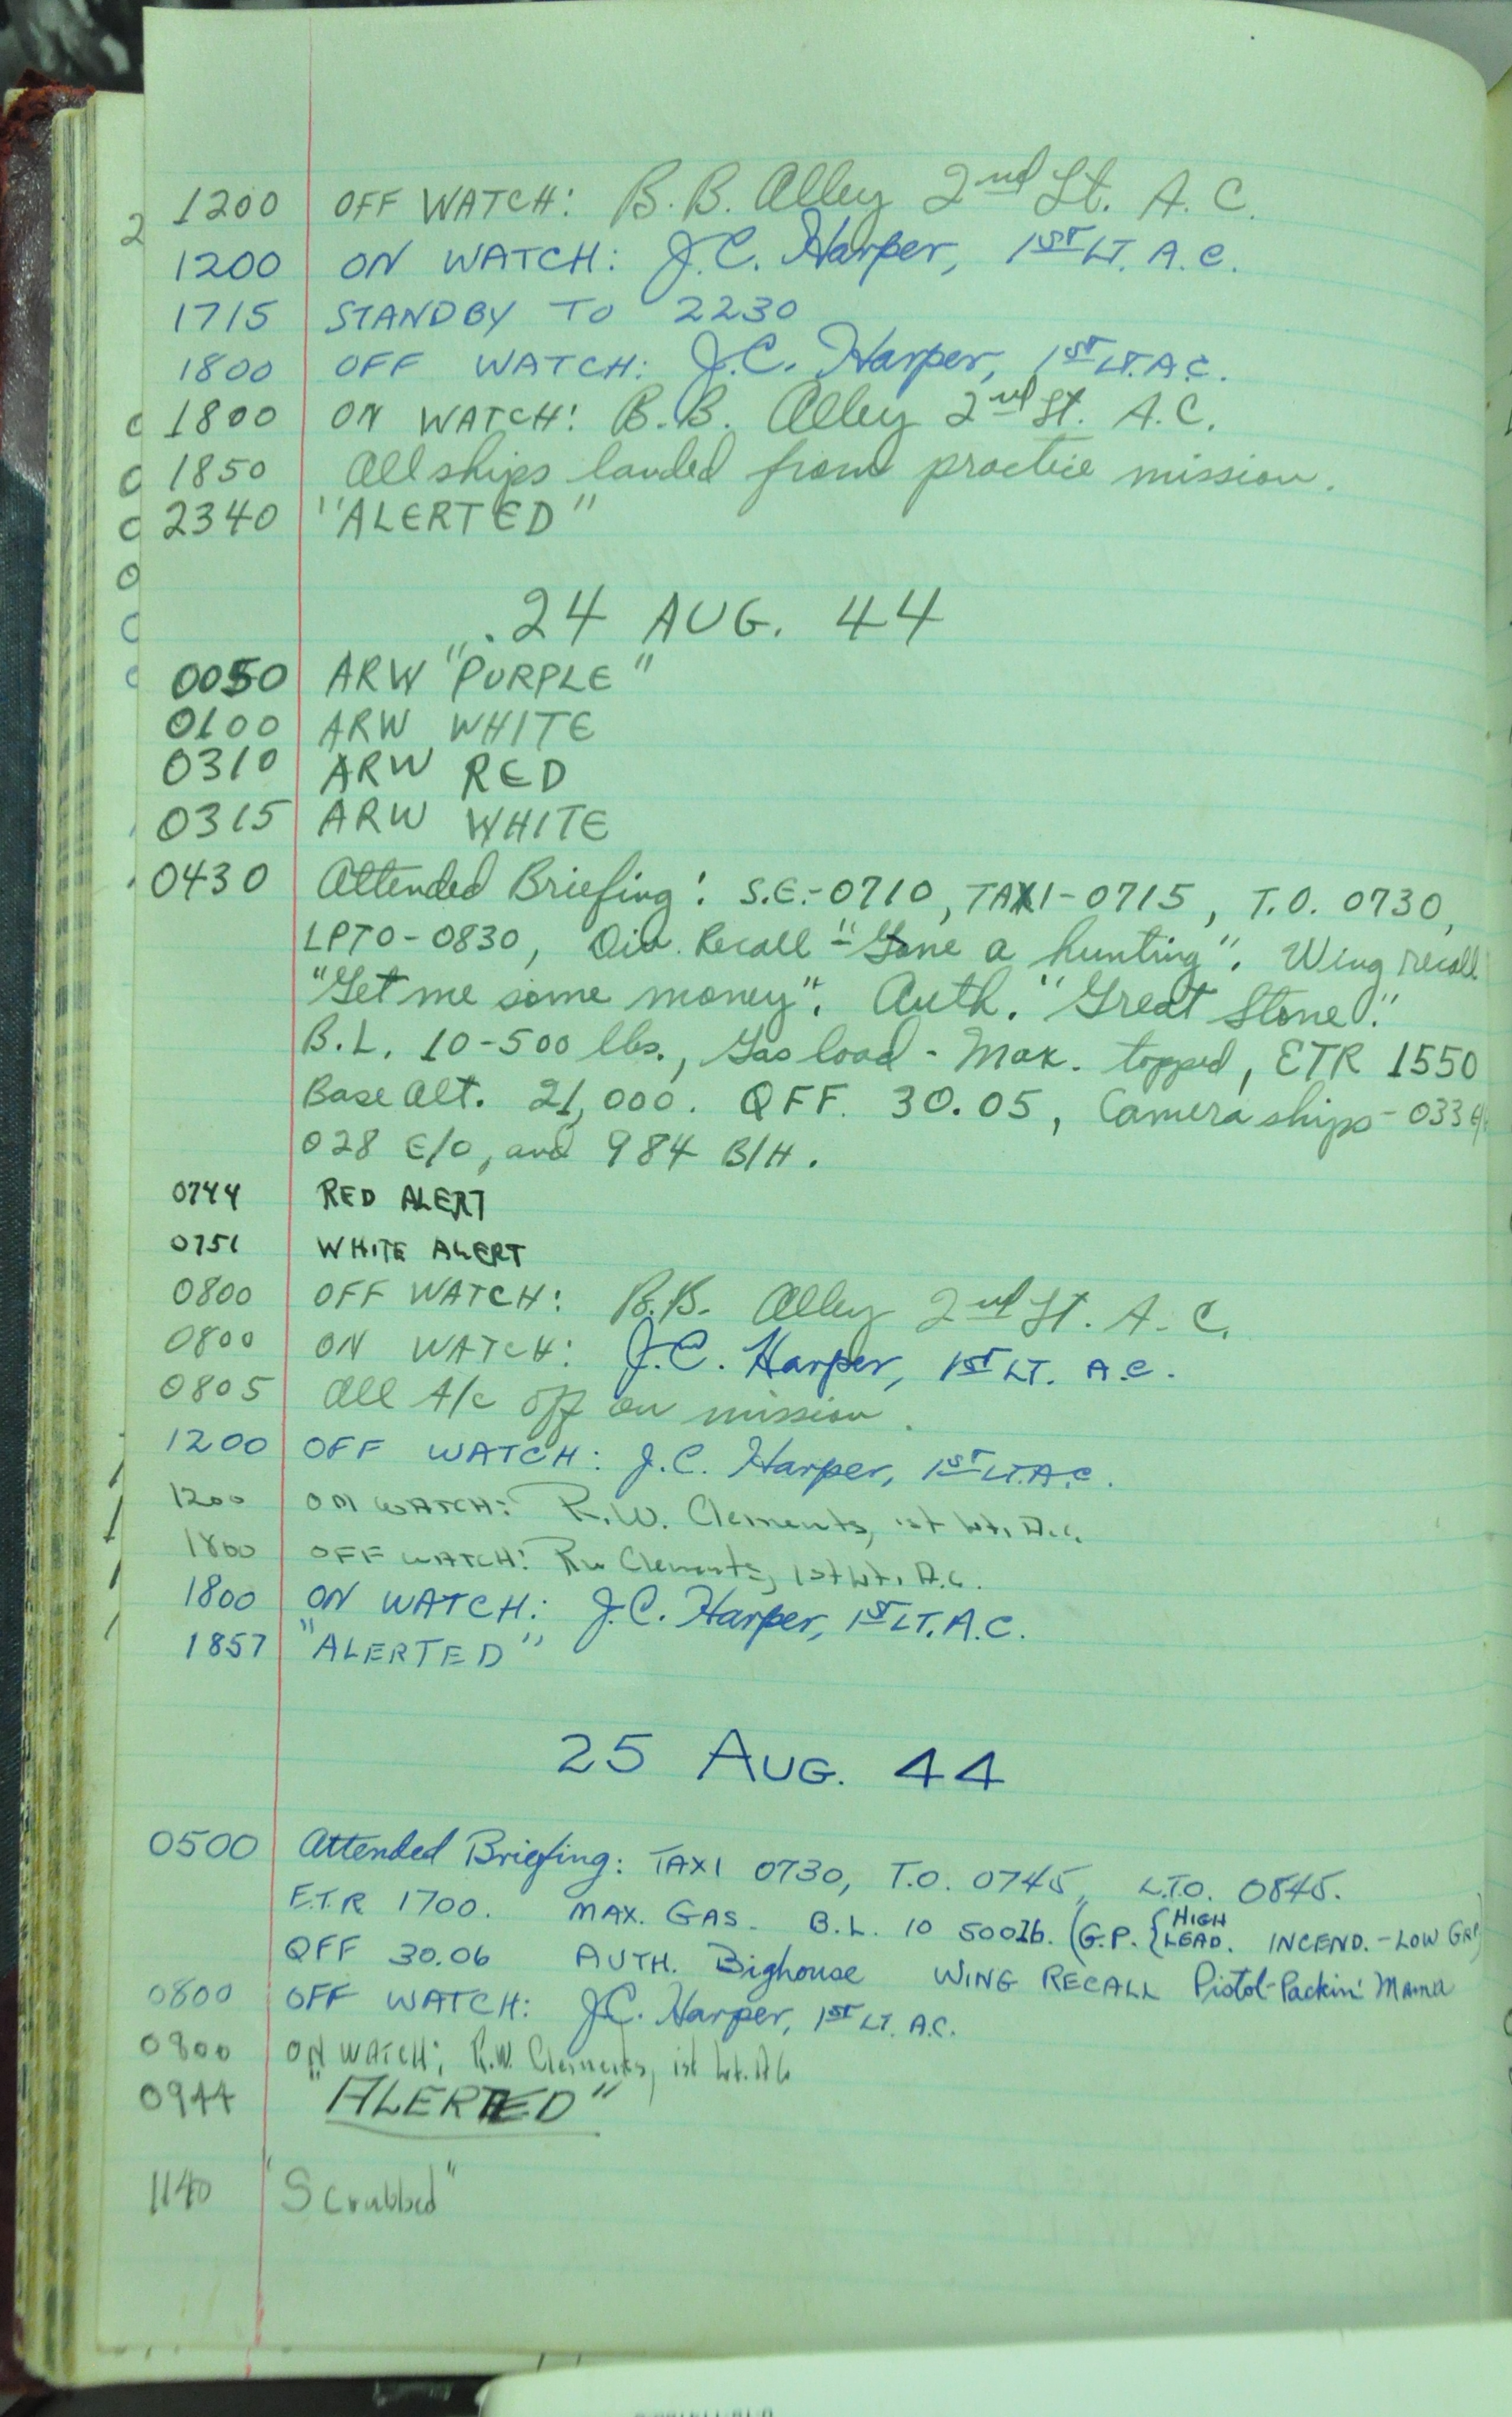 1200 OFF WATCH: B.B. Alley 2nd Lt. A.C.
1200 ON WATCH: J.C. Harper, 1ST LT. A.C.
1715 STANDBY TO 2230
1800 OFF WATCH: J.C. Harper, 1ST LT. A.C.
1800 ON WATCH: B.B. Alley 2nd Lt. A.C.
1850 All ships landed from practice mission.
2340 "ALERTED"
24 AUG. 44
0050 ARW "PURPLE"
0100 ARW WHITE
0310 ARW RED
0315 ARW WHITE
0430 Attended Briefing: S.E.-0710, TAXI-0715, T.O. 0730,
LPTO-0830, Div. Recall - "Gone a hunting". Wing recall
"Get me some money". Auth. "Great Stone".
B.L. 10-500 lbs., Gas load - Max. topped, ETR 1550
Base Alt. 21,000. QFF. 30.05, Camera ships - 033
028 E/O, and 984 B/H.
0744 RED ALERT
0751 WHITE ALERT
0800 OFF WATCH: B.B. Alley 2nd Lt. A.C.
0800 ON WATCH: J.C. Harper, 1ST LT. A.C.
0805 All A/C off on mission.
1200 OFF WATCH: J.C. Harper, 1ST LT. A.C.
1200 ON WATCH: R.W. Clements, 1st Lt. A.C.
1800 OFF WATCH: RW Clements, 1st Lt. A.C.
1800 ON WATCH: J.C. Harper, 1ST LT. A.C.
1857 "ALERTED"
25 AUG. 44
0500 Attended Briefing: TAXI 0730, T.O. 0745, L.T.O. 0845.
E.T.R 1700. MAX. GAS. B.L. 10 500 lb. (G.P. { HIGH LEAD. INCEND. - LOW GRP)
QFF 30.06 AUTH. Bighouse WING RECALL Pistol-Packin' Mama
0800 OFF WATCH: J.C. Harper, 1ST LT. A.C.
0800 ON WATCH: R.W. Clements, 1st Lt. A.C.
0944 "ALERTED"
1140 "Scrubbed"